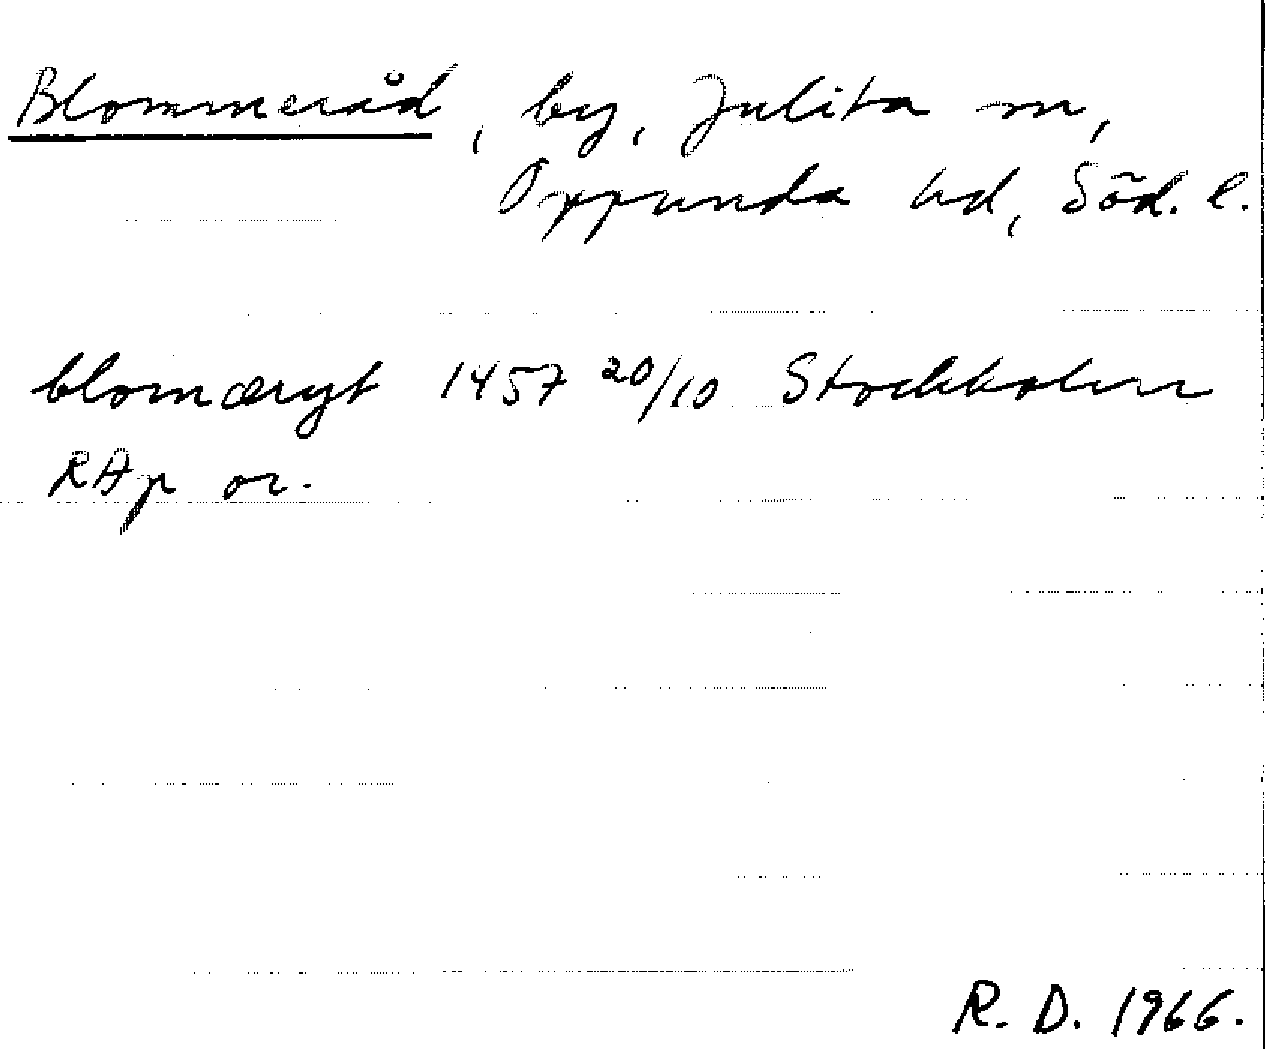 Blommeråd, by, Julita sn,
Oppunda hd, Söd. l.
blomæryt 1457 20/10 Stockholm
RAp or.
R. D. 1966.